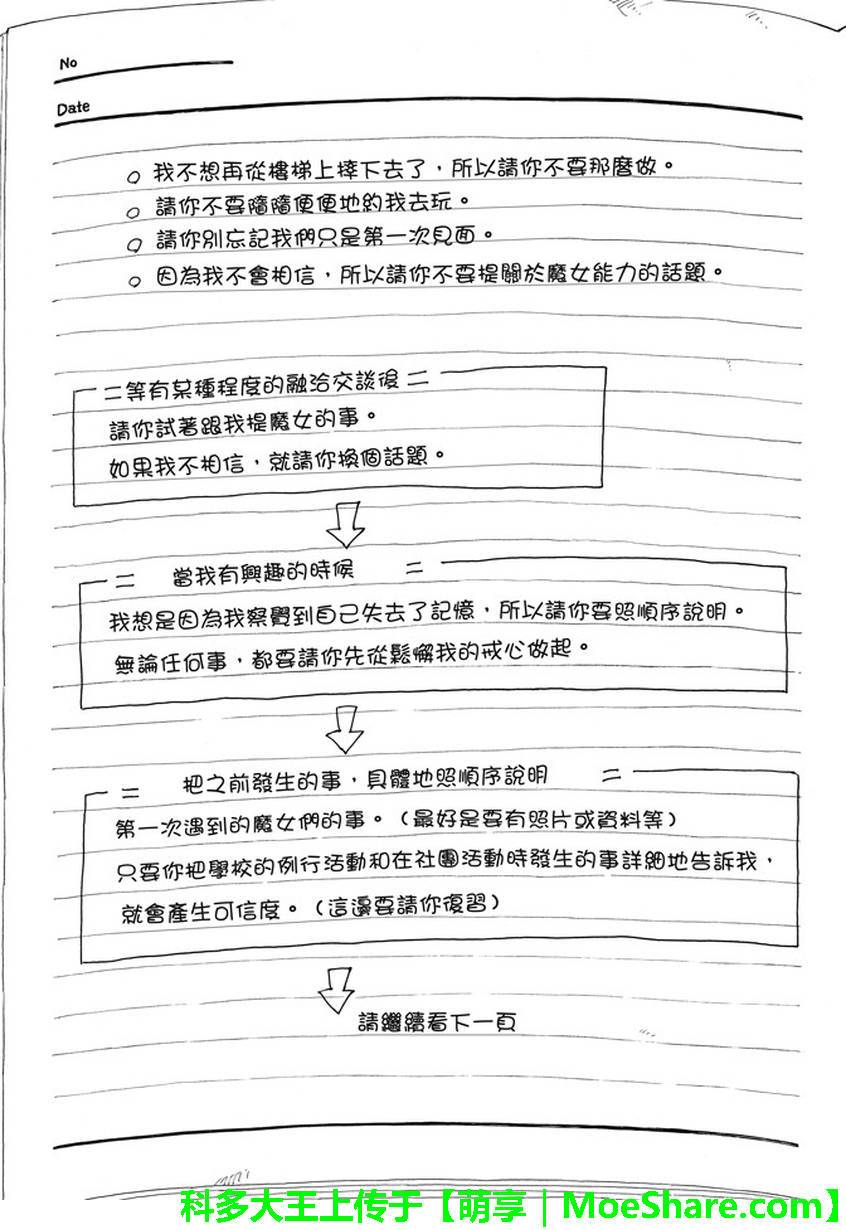 No
Date
○ 我不想再從樓梯上摔下去了，所以請你不要那麼做。
○ 請你不要隨隨便便地約我去玩。
○ 請你別忘記我們只是第一次見面。
○ 因為我不會相信，所以請你不要提關於魔女能力的話題。
＝等有某種程度的融洽交談後＝
請你試著跟我提魔女的事。
如果我不相信，就請你換個話題。
＝ 當我有興趣的時候 ＝
我想是因為我察覺到自己失去了記憶，所以請你要照順序說明。
無論任何事，都要請你先從鬆懈我的戒心做起。
＝ 把之前發生的事，具體地照順序說明 ＝
第一次遇到的魔女們的事。（最好是要有照片或資料等）
只要你把學校的例行活動和在社團活動時發生的事詳細地告訴我，
就會產生可信度。（這邊要請你復習）
請繼續看下一頁
科多大王上传于【萌享｜MoeShare.com】